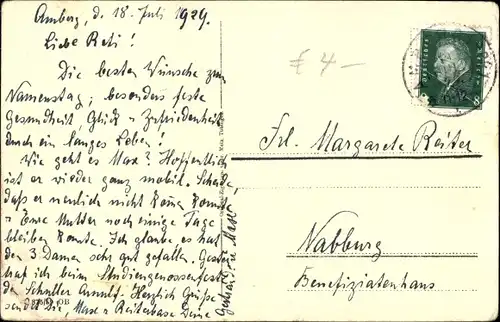 Amberg, d. 18. Juli 1929.
Liebe Reti!
Die besten Wünsche zum
Namenstag; besonders feste
Gesundheit Glück u Zufriedenheit
durch ein langes Leben!
Wie geht es Max? Hoffentlich
ist er wieder ganz mobil. Schade,
daß er neulich nicht konnte
u Eure Mutter noch einige Tage
bleiben konnte. Ich glaube es hat
den 3 Damen sehr gut gefallen.
hab ich beim Studiengenossenfest
den Schüller Herzlich Grüße
sendet die Maxe u Reiterbase Deine
€ 4-
DEUTSCHES REICH
8
Frl. Margarete Reiter
Nabburg
Benefiziatenhaus